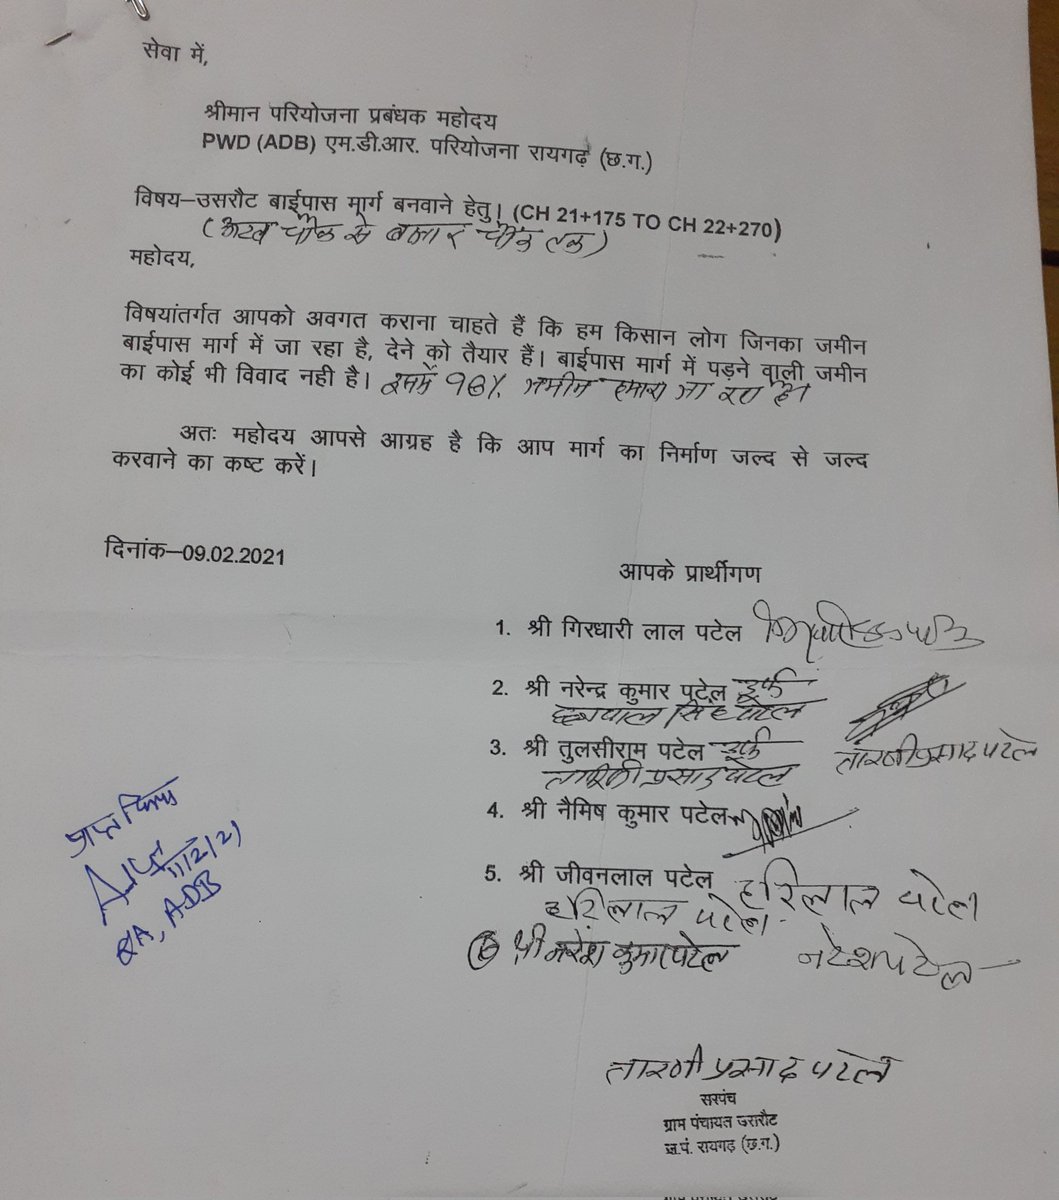 सेवा में,
श्रीमान परियोजना प्रबंधक महोदय
PWD (ADB) एम.डी.आर. परियोजना रायगढ़ (छ.ग.)
विषय–उसरौट बाईपास मार्ग बनवाने हेतु। (CH 21+175 TO CH 22+270)
चौक से बजार चौक तक)
महोदय,
विषयांतर्गत आपको अवगत कराना चाहते हैं कि हम किसान लोग जिनका जमीन
बाईपास मार्ग में जा रहा है, देने को तैयार हैं। बाईपास मार्ग में पड़ने वाली जमीन
का कोई भी विवाद नही है। इसमें जमीन हमारा जा रहा है।
अतः महोदय आपसे आग्रह है कि आप मार्ग का निर्माण जल्द से जल्द
करवाने का कष्ट करें।
दिनांक–09.02.2021
आपके प्रार्थीगण
1. श्री गिरधारी लाल पटेल
2. श्री नरेन्द्र कुमार पटेल उर्फ
छत्रपाल सिंह पटेल
3. श्री तुलसीराम पटेल उर्फ तारणी प्रसाद पटेल
तारिणी प्रसाद पटेल
4. श्री नैमिष कुमार पटेल
5. श्री जीवनलाल पटेल हरिलाल पटेल
हरिलाल पटेल
6 श्री नरेश कुमार पटेल नरेश पटेल
प्राप्त किया
11/2/21
ADB
तारणी प्रसाद पटेल
सरपंच
ग्राम पंचायत उसरौट
ज.पं. रायगढ़ (छ.ग.)